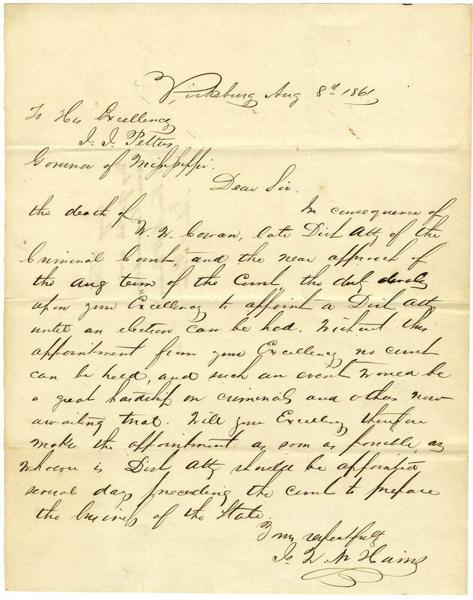 Vicksburg Aug 8th 1861
To His Excellency
J. J. Pettus
Governor of Mississippi.
Dear Sir.
In consequence of
the death of
W. W. Cowan, late Dist Atty of the
Criminal Court, and the near approach of
the Aug term of the Court, the duty devolves
upon your Excellency to appoint a Dist Atty
until an election can be had. Without this
appointment from your Excellency no court
can be held, and such an event would be
a great hardship on criminals and others now
awaiting trial. Will your Excellency therefore
make the appointment as soon as possible, as
whoever is Dist Atty should be appointed
several days preceding the Court to prepare
the business of the State.
Your respectfully